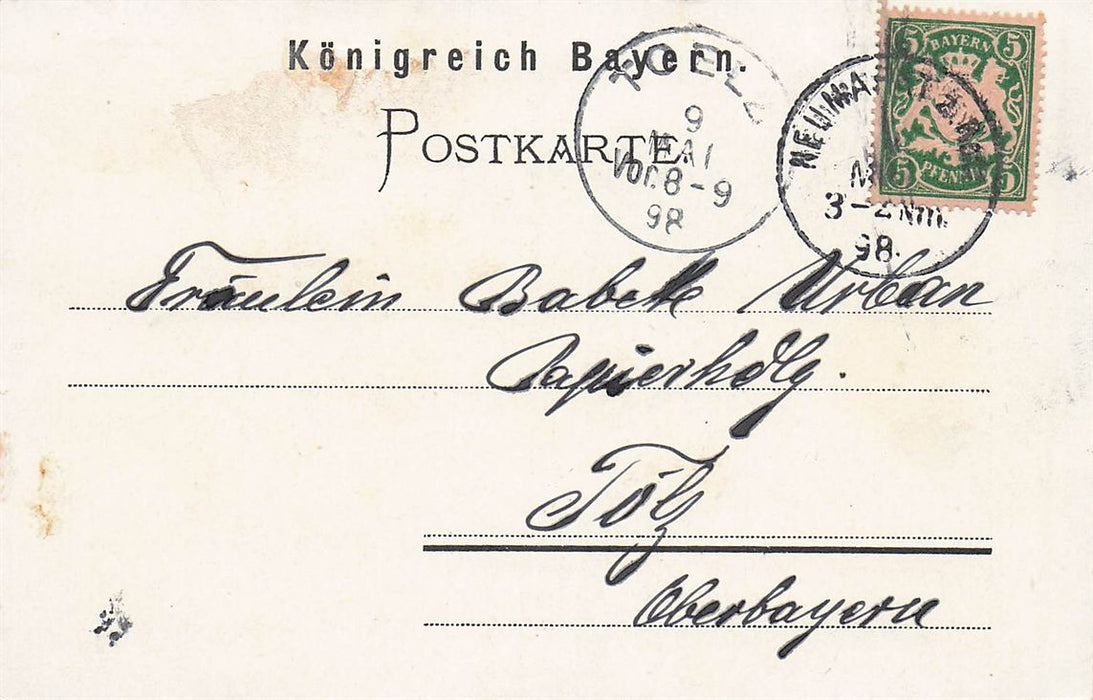 Königreich Bayern.
POSTKARTE.
TOELZ
9
MAI
Vor. 8-9
98
NEUMARKT
3-4 Nm.
98.
5 BAYERN 5
5 PFENNIG 5
Fräulein Babette Urban
Papierhdlg.
Tölz
Oberbayern